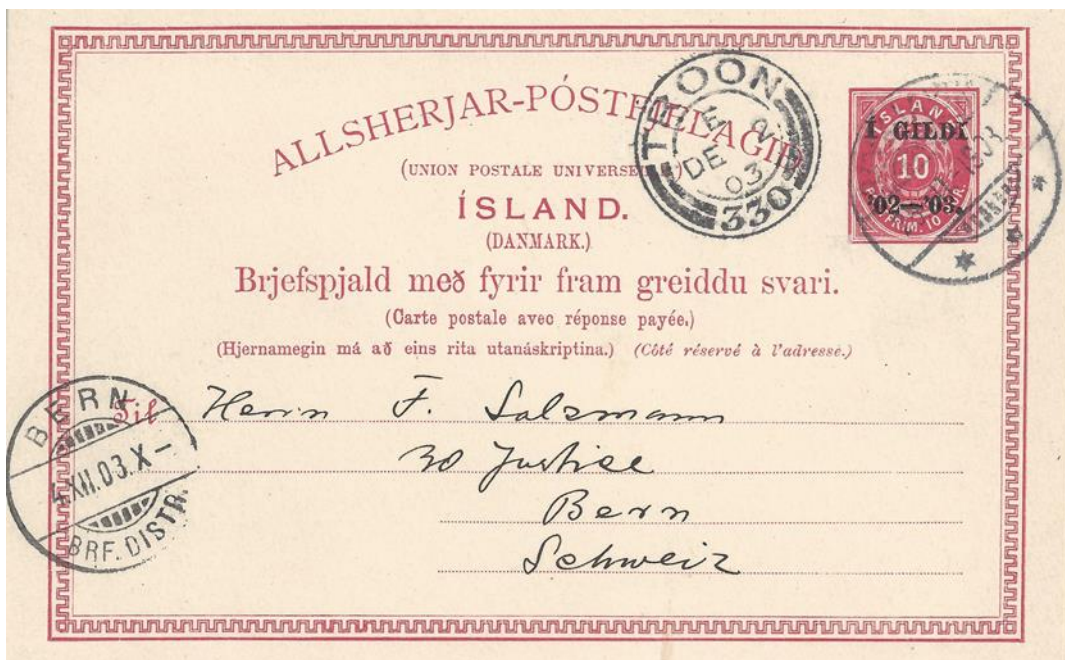 ALLSHERJAR-PÓSTFJELAGIÐ
(UNION POSTALE UNIVERSELLE)
ÍSLAND.
(DANMARK.)
Brjefspjald með fyrir fram greiddu svari.
(Carte postale avec réponse payée.)
(Hjernamegin má að eins rita utanáskriptina.) (Côté réservé à l'adresse.)
TROON
E
DE 2
03
330
ÍSLAND
Í GILDI
10
'02—'03.
Til Herrn F. Salzmann
Justice
Bern
Schweiz
BERN
4.XII.03.X–
BRF. DISTR.